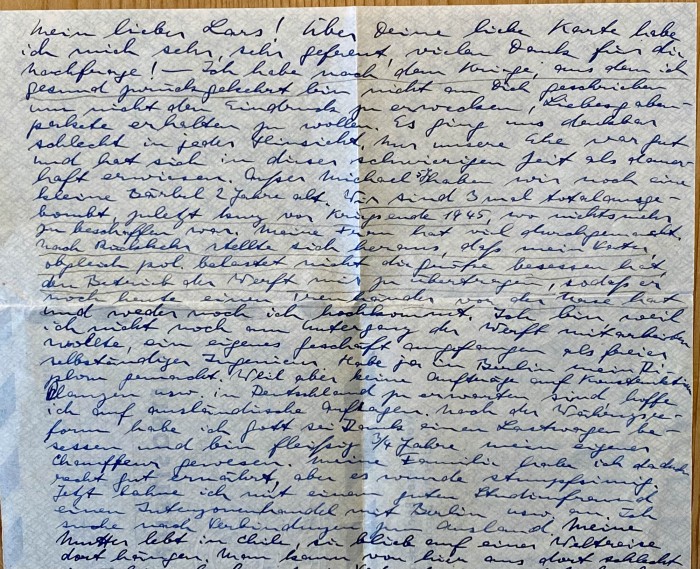 Mein lieber Lars! Über Deine liebe Karte habe
ich mich sehr, sehr gefreut, vielen Dank für die
Nachfrage! — Ich habe nach dem Kriege, aus dem ich
gesund zurückgekehrt bin nicht an Dich geschrieben
um nicht den Eindruck zu erwecken, Liebesgaben-
pakete erhalten zu wollen. Es ging uns denkbar
schlecht in jeder Hinsicht, nur unsere Ehe war gut
und hat sich in dieser schwierigen Zeit als dauer-
haft erwiesen. Außer Michael haben wir noch eine
kleine Bärbel 2 Jahre alt. Wir sind 3 mal totalausge-
bombt, zuletzt kurz vor Kriegsende 1945, wo nichts mehr
zu beschaffen war. Meine Frau hat viel durchgemacht.
Nach Rückkehr stellte sich heraus, daß mein Vater,
obgleich pol. belastet nicht die Größe besessen hat,
den Betrieb der Werft mir zu übertragen, sodaß er
noch heute einen Treuhänder vor der Nase hat
und weder noch ich hochkommt. Ich bin weil
ich nicht noch am Untergang der Werft mitarbeiten
wollte, ein eigenes Geschäft angefangen als freier
selbständiger Ingenieur. Habe ja in Berlin mein Di-
plom gemacht. Weil aber keine Aufträge auf Konstruktion
Planzen usw. in Deutschland zu erwarten sind hoffe
ich auf ausländische Aufträge. Nach der Währungsre-
form habe ich Gott sei Dank einen Lastwagen be-
sessen und bin fleißig 3/4 Jahre mein eigener
Chauffeur gewesen. Meine Familie habe ich dadurch
recht gut ernährt, aber es wurde stumpfsinnig.
Jetzt habe ich mit einem guten Studienfreund
einen Interzonenhandel mit Berlin usw. an. Ich
suche nach Verbindungen zum Ausland. Meine
Mutter lebt in Chile, sie blieb auf einer Weltreise
dort hängen. Man kann von hier aus dort schlecht